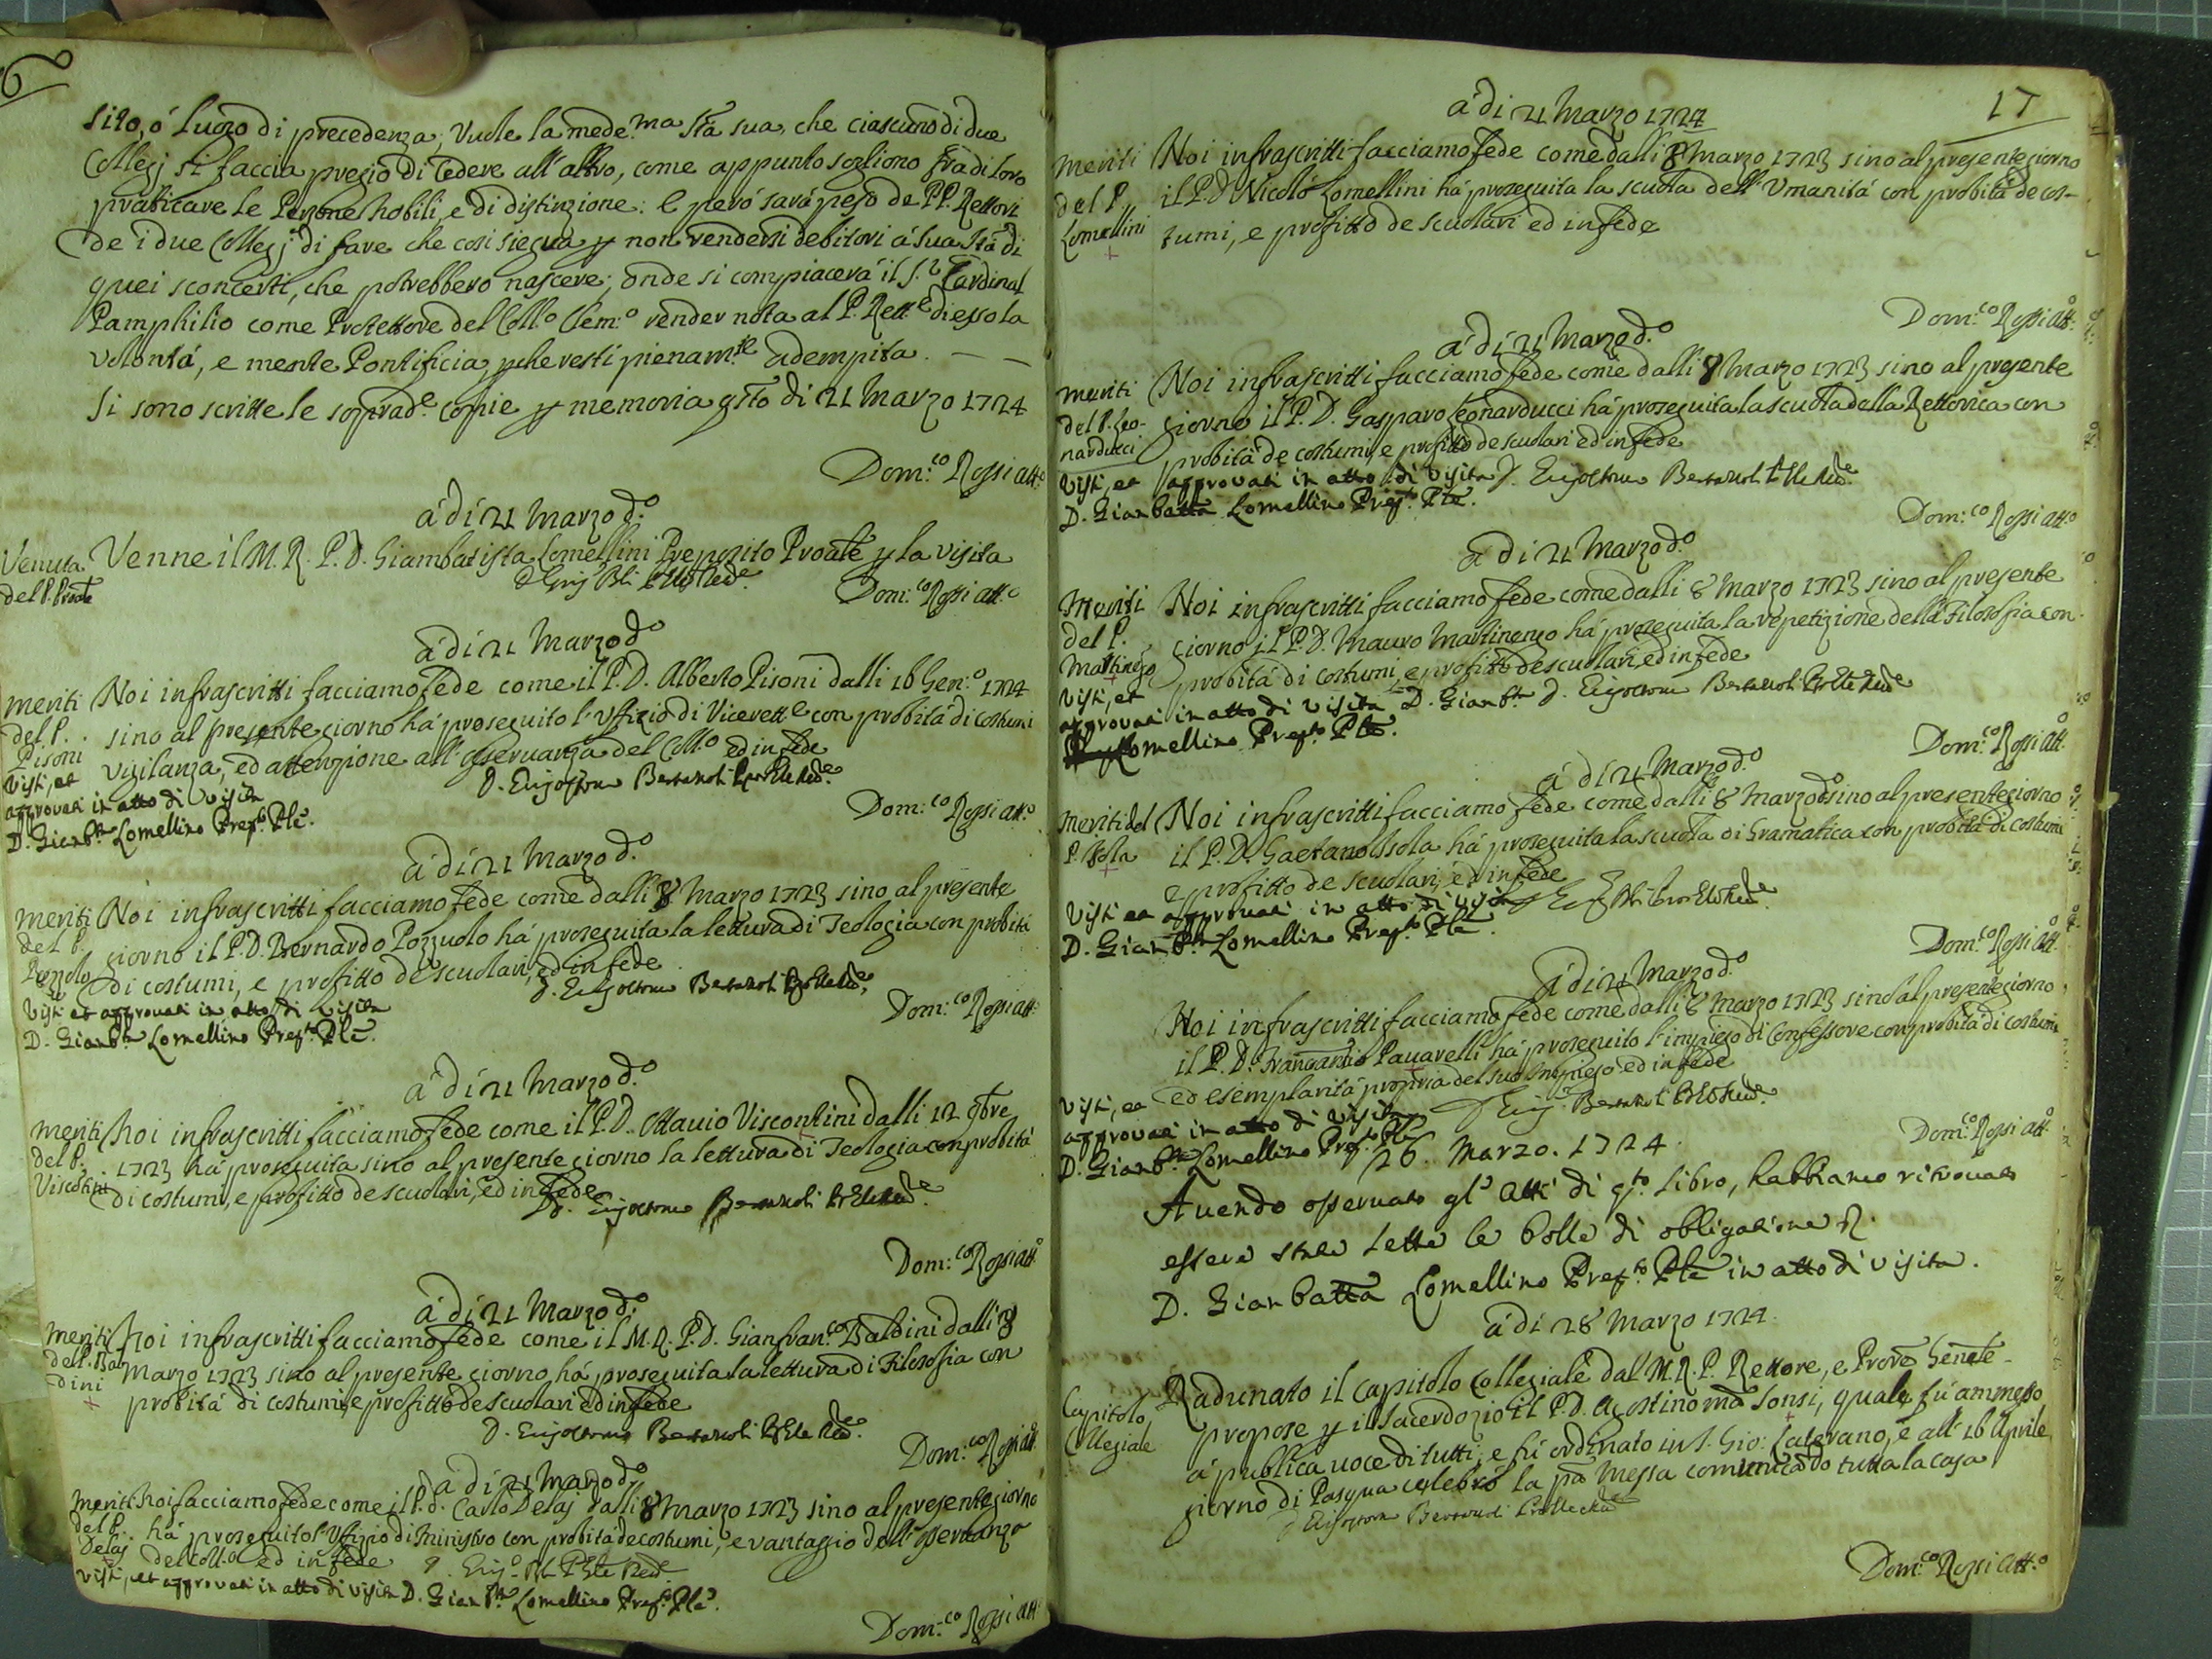 6
sito, ó luogo di precedenza, Vuole la mede:ma Stà sua, che ciascuno di due
Collegj si faccia pregio di cedere all'altro, come appunto sogliono frà di loro
pratticare le Persone nobili, e di distinzione: e peró sará peso de PP. Rettori
de i due Collegj di fare che cosi siegua p non rendersi debitori á sua Stà di
quei sconcerti, che potrebbero nascere; onde si compiacerá il S.r Cardinal
Pamphilio come Protettore del Coll:o Clem:o render nota al P. Rett:e di esso la
volontá, e mente Pontificia, pche resti pienam:te adempita.
Si sono scritte le soprad:e copie p memoria qsto di 21 Marzo 1724
Dom:co Rossi att:o
á di 21 Marzo d:o
Venuta del P. Proãle
Venne il M. R. P. D. Giambatista Lomellini Preposito Proãle p la visita
Dom:co Rossi att:o
á di 21 Marzo d:o
meriti del P. Pisoni
Noi infrascritti facciamo fede come il P. D. Alberto Pisoni dalli 16 Gen:o 1724
sino al presente giorno há proseguito l'Uffizio di Vicerett:e con probitá di costumi
vigilanza, ed attenzione all'osservanza del Coll:o ed in fede
Visti, et
approvati in atto di visita
D. Gianb:ta Lomellino Prep:to Ple.
Dom:co Rossi att:o
á di 21 Marzo d:o
meriti del P. Pozzolo
Noi infrascritti facciamo fede come dalli 8 Marzo 1723 sino al presente
giorno il P. D. Bernardo Pozzuolo há proseguita la lettura di Teologia con probitá
di costumi, e profitto de scuolari, ed in fede
Visti et approvati in atto di visita
D. Gianb:ta Lomellino Prep:to Ple.
Dom:co Rossi att:
á di 21 Marzo d:o
meriti del P. Viscontini
Noi infrascritti facciamo fede come il P. D. Ottavio Viscontini dalli 12 9bre
1723 há proseguita sino al presente giorno la lettura di Teologia con probitá
di costumi, e profitto de scuolari, ed in fede
Dom:co Rossi att:o
á di 21 Marzo d:o
meriti del P. Baldini
Noi infrascritti facciamo fede come il M. R. P. D. Gianfran:co Baldini dalli 8
Marzo 1723 sino al presente giorno, há proseguita la lettura di Filosofia con
probitá di costumi, e profitto de scuolari ed in fede
Dom:co Rossi att:
á di 21 Marzo d:o
meriti del P. Delaj
Noi facciamo fede come il P. D. Carlo Delaj dalli 8 Marzo 1723 sino al presente giorno
há proseguito l'Uffizio di Ministro con probitá de costumi, e vantaggio dell'osservanza
del Coll:o ed in fede
Visti, et approvati in atto di visita D. Gianb:ta Lomellino Prep:to Ple.
Dom:co Rossi att:
17
á di 21 Marzo 1724
meriti del P. Lomellini
Noi infrascritti facciamo fede come dalli 8 Marzo 1723 sino al presente giorno
il P. D. Nicoló Lomellini há proseguita la scuola dell'Umanitá con probitá de cos-
tumi, e profitto de scuolari ed in fede
Dom:co Rossi att:o
á di 21 Marzo d:o
meriti del P. Leonarducci
Noi infrascritti facciamo fede come dalli 8 Marzo 1723 sino al presente
giorno il P. D. Gasparo Leonarducci há proseguita la scuola della Rettorica con
probitá de costumi, e profitto de scuolari ed in fede
Visti, et approvati in atto di visita
D. Gianbatta Lomellino Prep:to Ple.
Dom:co Rossi att:o
á di 21 Marzo d:o
Meriti del P. Martinengo
Noi infrascritti facciamo fede come dalli 8 Marzo 1723 sino al presente
giorno il P. D. Mauro Martinengo há proseguita la repetizione della Filosofia con
probitá di costumi, e profitto de scuolari, ed in fede
Visti, et
approvati in atto di visita D. Gianb:ta
Lomellino Prep:to Ple.
Dom:co Rossi att:o
á di 21 Marzo d:o
Meriti del P. Isola
Noi infrascritti facciamo fede come dalli 8 Marzo d:o sino al presente giorno
il P. D. Gaetano Isola há proseguita la scuola di Gramatica con probitá di costumi
e profitto de scuolari, ed in fede
Visti et approvati in atto di visita
D. Gianb:ta Lomellino Prep:to Ple.
Dom:co Rossi att:o
á di 21 Marzo d:o
Noi infrascritti facciamo fede come dalli 8 Marzo 1723 sino al presente giorno
il P. D. Pavarelli há proseguito l'impiego di Confessore con probitá di costumi
ed esemplaritá propria del suo impiego ed in fede
Visti, et
approvati in atto di visita
D. Gianb:ta Lomellino Prep:to Ple
Dom:co Rossi att:o
26. Marzo. 1724
Avendo osservato gl'Atti di qto. Libro, habbiamo ritrovato
essere state lette le bolle di obligatione
D. Gianbatta Lomellino Prep:to Ple in atto di visita.
á di 28 Marzo 1724.
Capitolo Collegiale
Radunato il Capitolo Collegiale dal M. R. P. Rettore, e Prore Genele
propose p il Sacerdozio il P. D. Agostino mã Sonsi, quale fú ammesso
á publica voce di tutti, e fú ordinato in S. Gio: Laterano, e all' 16 Aprile
giorno di Pasqua celebró la pã Messa comunicãdo tutta la casa
Dom:co Rossi att:o